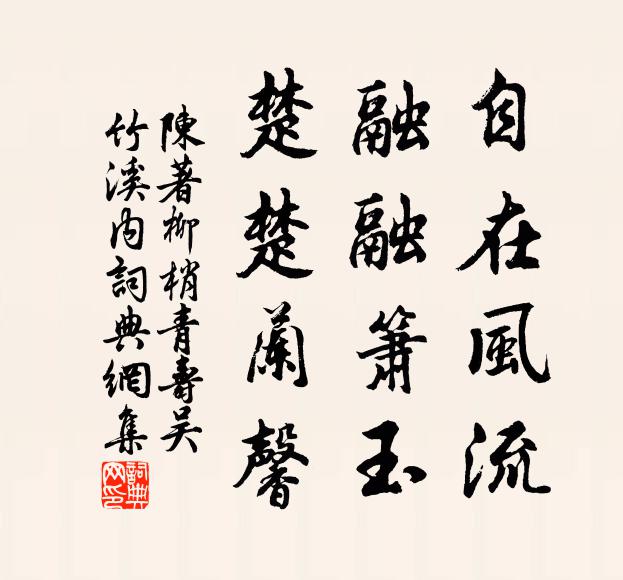 自在風流
融融簫玉
楚楚蘭馨
陳著柳梢青壽吴
竹溪内詞典網集
詞典网印